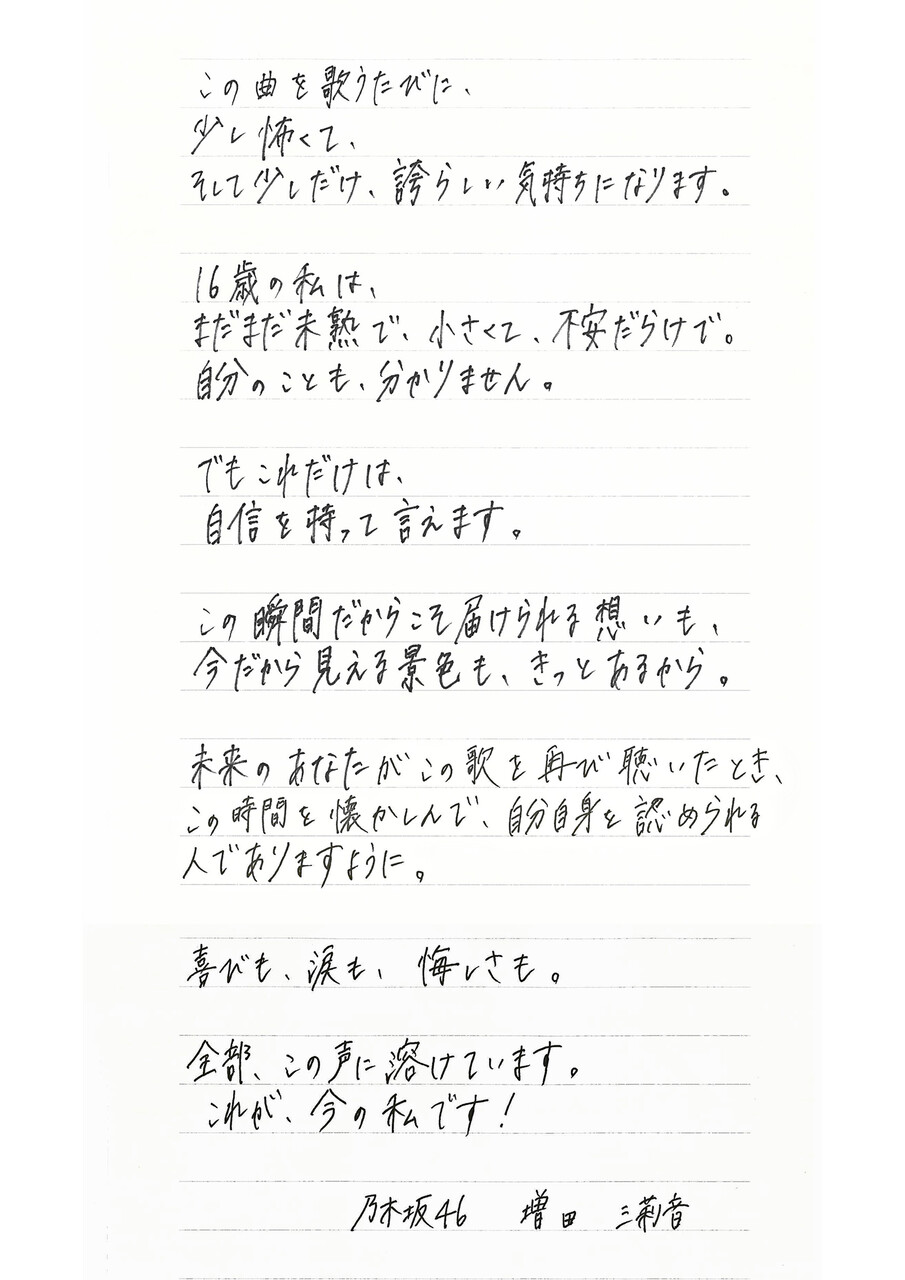 この曲を歌うたびに、
少し怖くて、
そして少しだけ、誇らしい気持ちになります。
16歳の私は、
まだまだ未熟で、小さくて、不安だらけで。
自分のことも、分かりません。
でもこれだけは、
自信を持って言えます。
この瞬間だからこそ届けられる想いも、
今だから見える景色も、きっとあるから。
未来のあなたがこの歌を再び聴いたとき、
この時間を懐かしんで、自分自身を認められる
人でありますように。
喜びも、涙も、悔しさも。
全部、この声に溶けています。
これが、今の私です！
乃木坂46 増田 三莉音